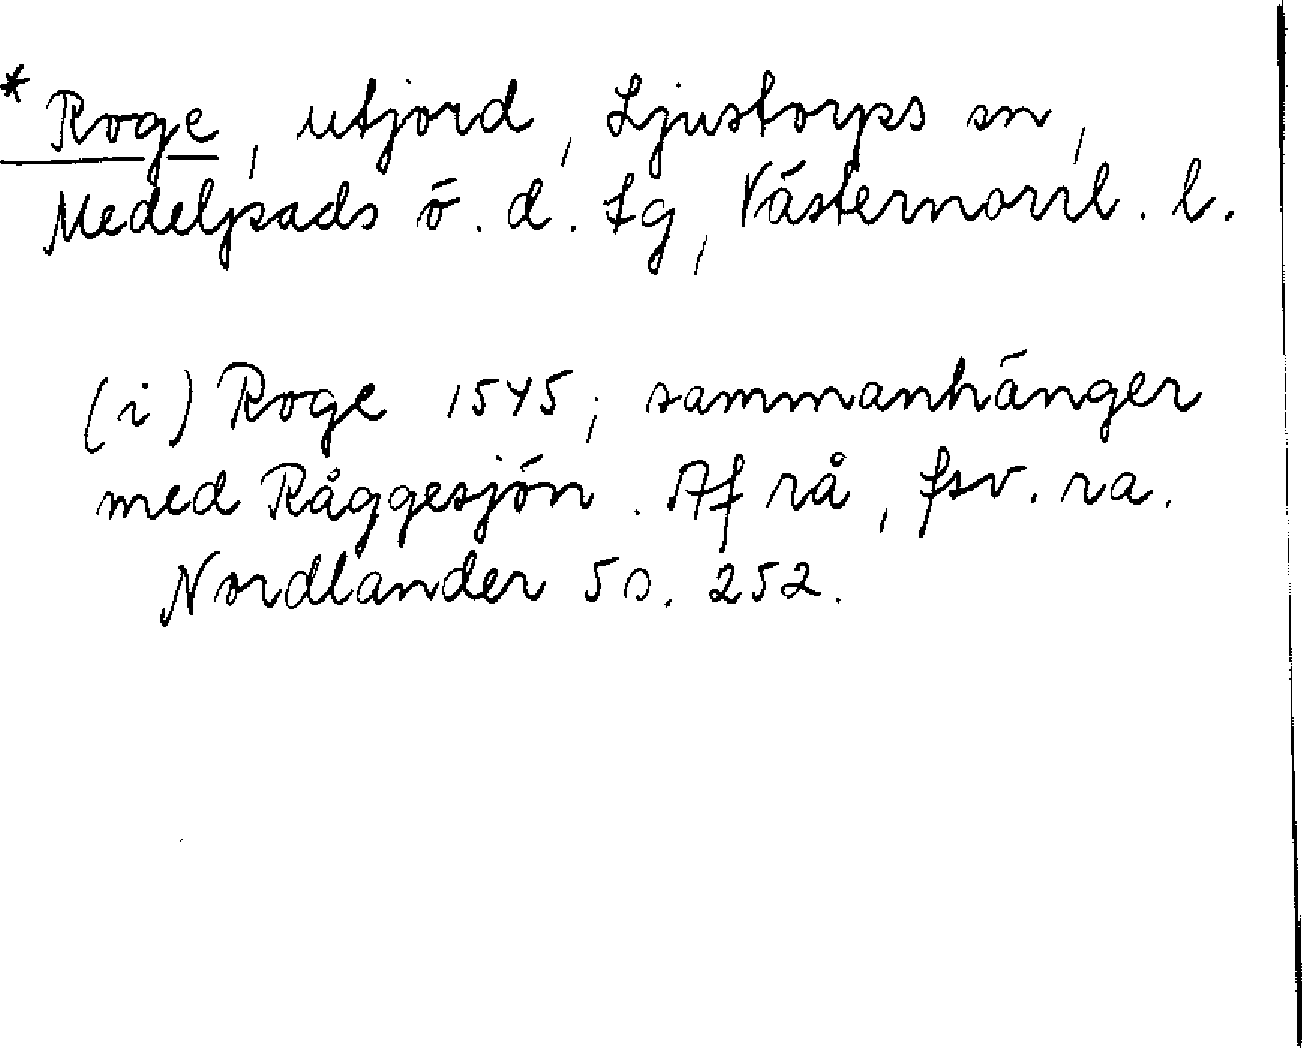 * Roge, utjord, Ljustorps sn,
Medelpads ö. d. tg, Västernorrl. l.
(i) Roge 1545; sammanhänger
med Råggesjön. Af rå, fsv. ra.
Nordlander 5 s. 252.